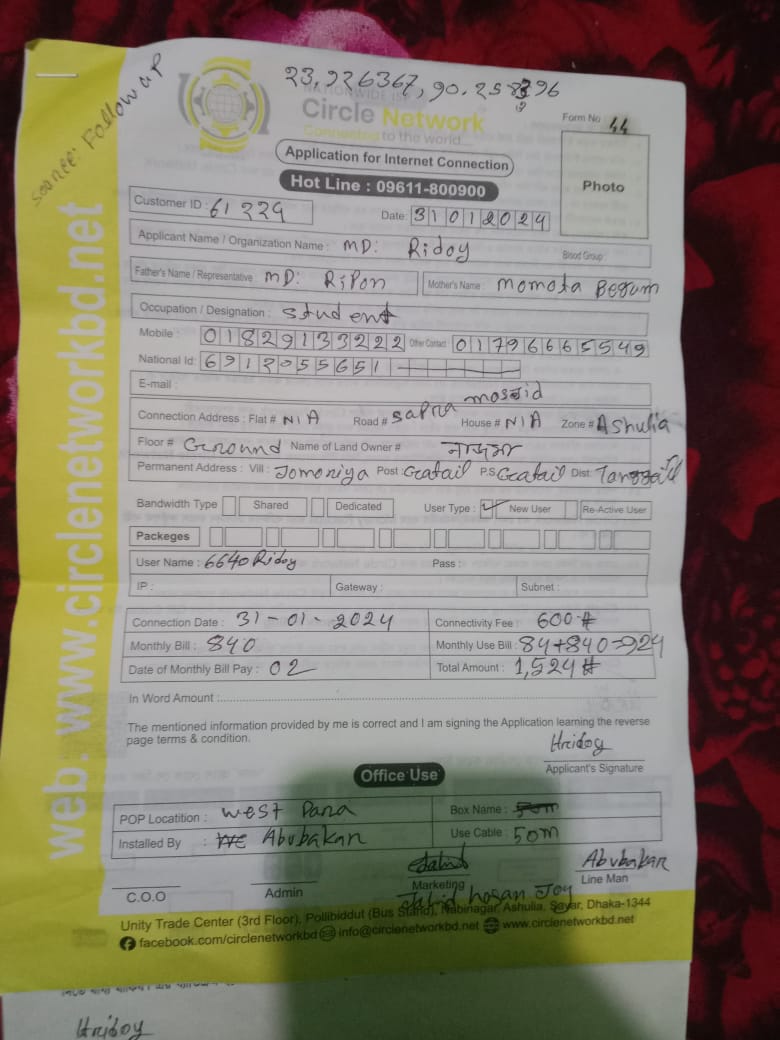 23.926367, 90.25 96
source: Follow up
NATIONWIDE ISP
Circle Network
Connected to the world...
Form No 44
Application for Internet Connection
Photo
Hot Line : 09611-800900
Customer ID : 61229
Date: 31012024
Applicant Name / Organization Name : MD: Ridoy
Blood Group :
Father's Name / Representative MD: Ripon Mother's Name : Momota Begum
Occupation / Designation : Student
Mobile : 01829133222 Other Contact 01796665549
National Id: 6912055651
E-mail :
Connection Address : Flat # N/A Road # Sapra mosjid House # N/A Zone # Ashulia
Floor # Geround Name of Land Owner # নাজমা
Permanent Address : Vill : Jomoniya Post: Gatail P.S Gatail Dist: Tanggail
Bandwidth Type Shared Dedicated User Type : ✓ New User Re-Active User
Packeges
User Name : 6640Ridoy Pass :
IP : Gateway : Subnet :
Connection Date : 31-01-2024 Connectivity Fee : 600#
Monthly Bill : 840 Monthly Use Bill : 84+840=924
Date of Monthly Bill Pay : 02 Total Amount : 1,524#
In Word Amount :
The mentioned information provided by me is correct and I am signing the Application learning the reverse
page terms & condition.
Hridoy
Applicant's Signature
Office Use
POP Locatition : West Para Box Name :
Installed By : Abubakar Use Cable : 50m
Abubakar
C.O.O Admin Marketing Line Man
Jahid hosan Joy
Unity Trade Center (3rd Floor), Pollibiddut (Bus Stand), Nabinagar, Ashulia, Savar, Dhaka-1344
facebook.com/circlenetworkbd info@circlenetworkbd.net www.circlenetworkbd.net
web: www.circlenetworkbd.net
Hridoy